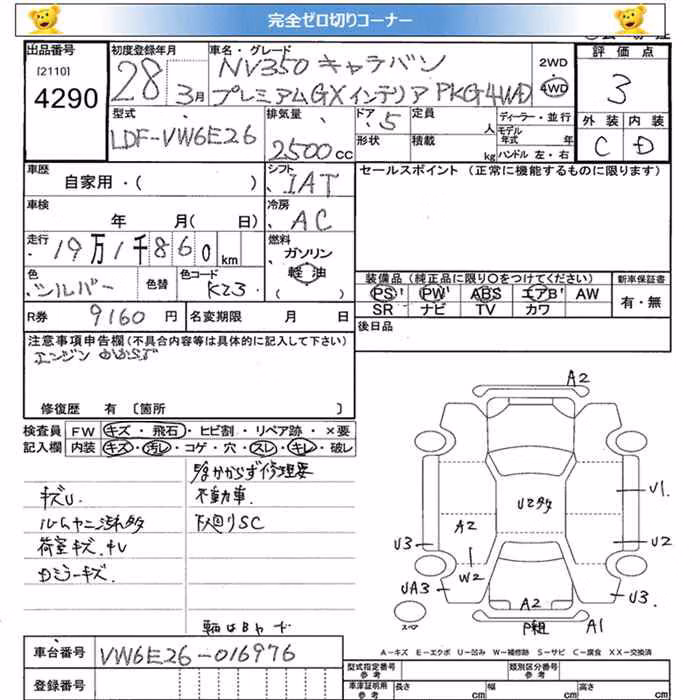 完全ゼロ切りコーナー
出品番号
[2110]
4290
初度登録年月
28年 3月
車名・グレード
NV350 キャラバン
プレミアムGXインテリアPKG4WD
2WD
4WD
評価点
3
外装 内装
C D
型式
LDF-VW6E26
排気量
2500cc
ドア 5
定員 人
ディーラー・並行
モデル年式 年
形状
積載 kg
ハンドル 左・右
車歴
自家用・( )
シフト
IAT
セールスポイント (正常に機能するものに限ります)
車検
年 月( 日)
冷房
AC
走行
19万1千860km
燃料
ガソリン
軽油
( )
色
シルバー
色替
色コード
K23
装備品 (純正品に限り○をつけてください)
新車保証書
PS PW ABS エアB AW
SR ナビ TV カワ
有・無
R券 9160円
名変期限 月 日
後日品
注意事項申告欄 (不具合内容等は具体的に記入して下さい)
エンジンかからず
修復歴 有 〔箇所 〕
検査員
記入欄
FW キズ・飛石・ヒビ割・リペア跡・×要
内装 キズ・汚レ・コゲ・穴・スレ・キレ・破レ
かからず修理要
キズU
不動車.
下廻りSC
荷室キズ.
Dミラーキズ.
A2
U2多
A2
W2
U1
U2
U3
UA3
U3
A2
A1
スペア
A-キズ E-エクボ U-凹み W-補修跡 S-サビ C-腐食 XX-交換済
車台番号
VW6E26-016976
登録番号
型式指定番号
参考
類別区分番号
参考
車庫証明用
参考
長さ cm
幅 cm
高さ cm